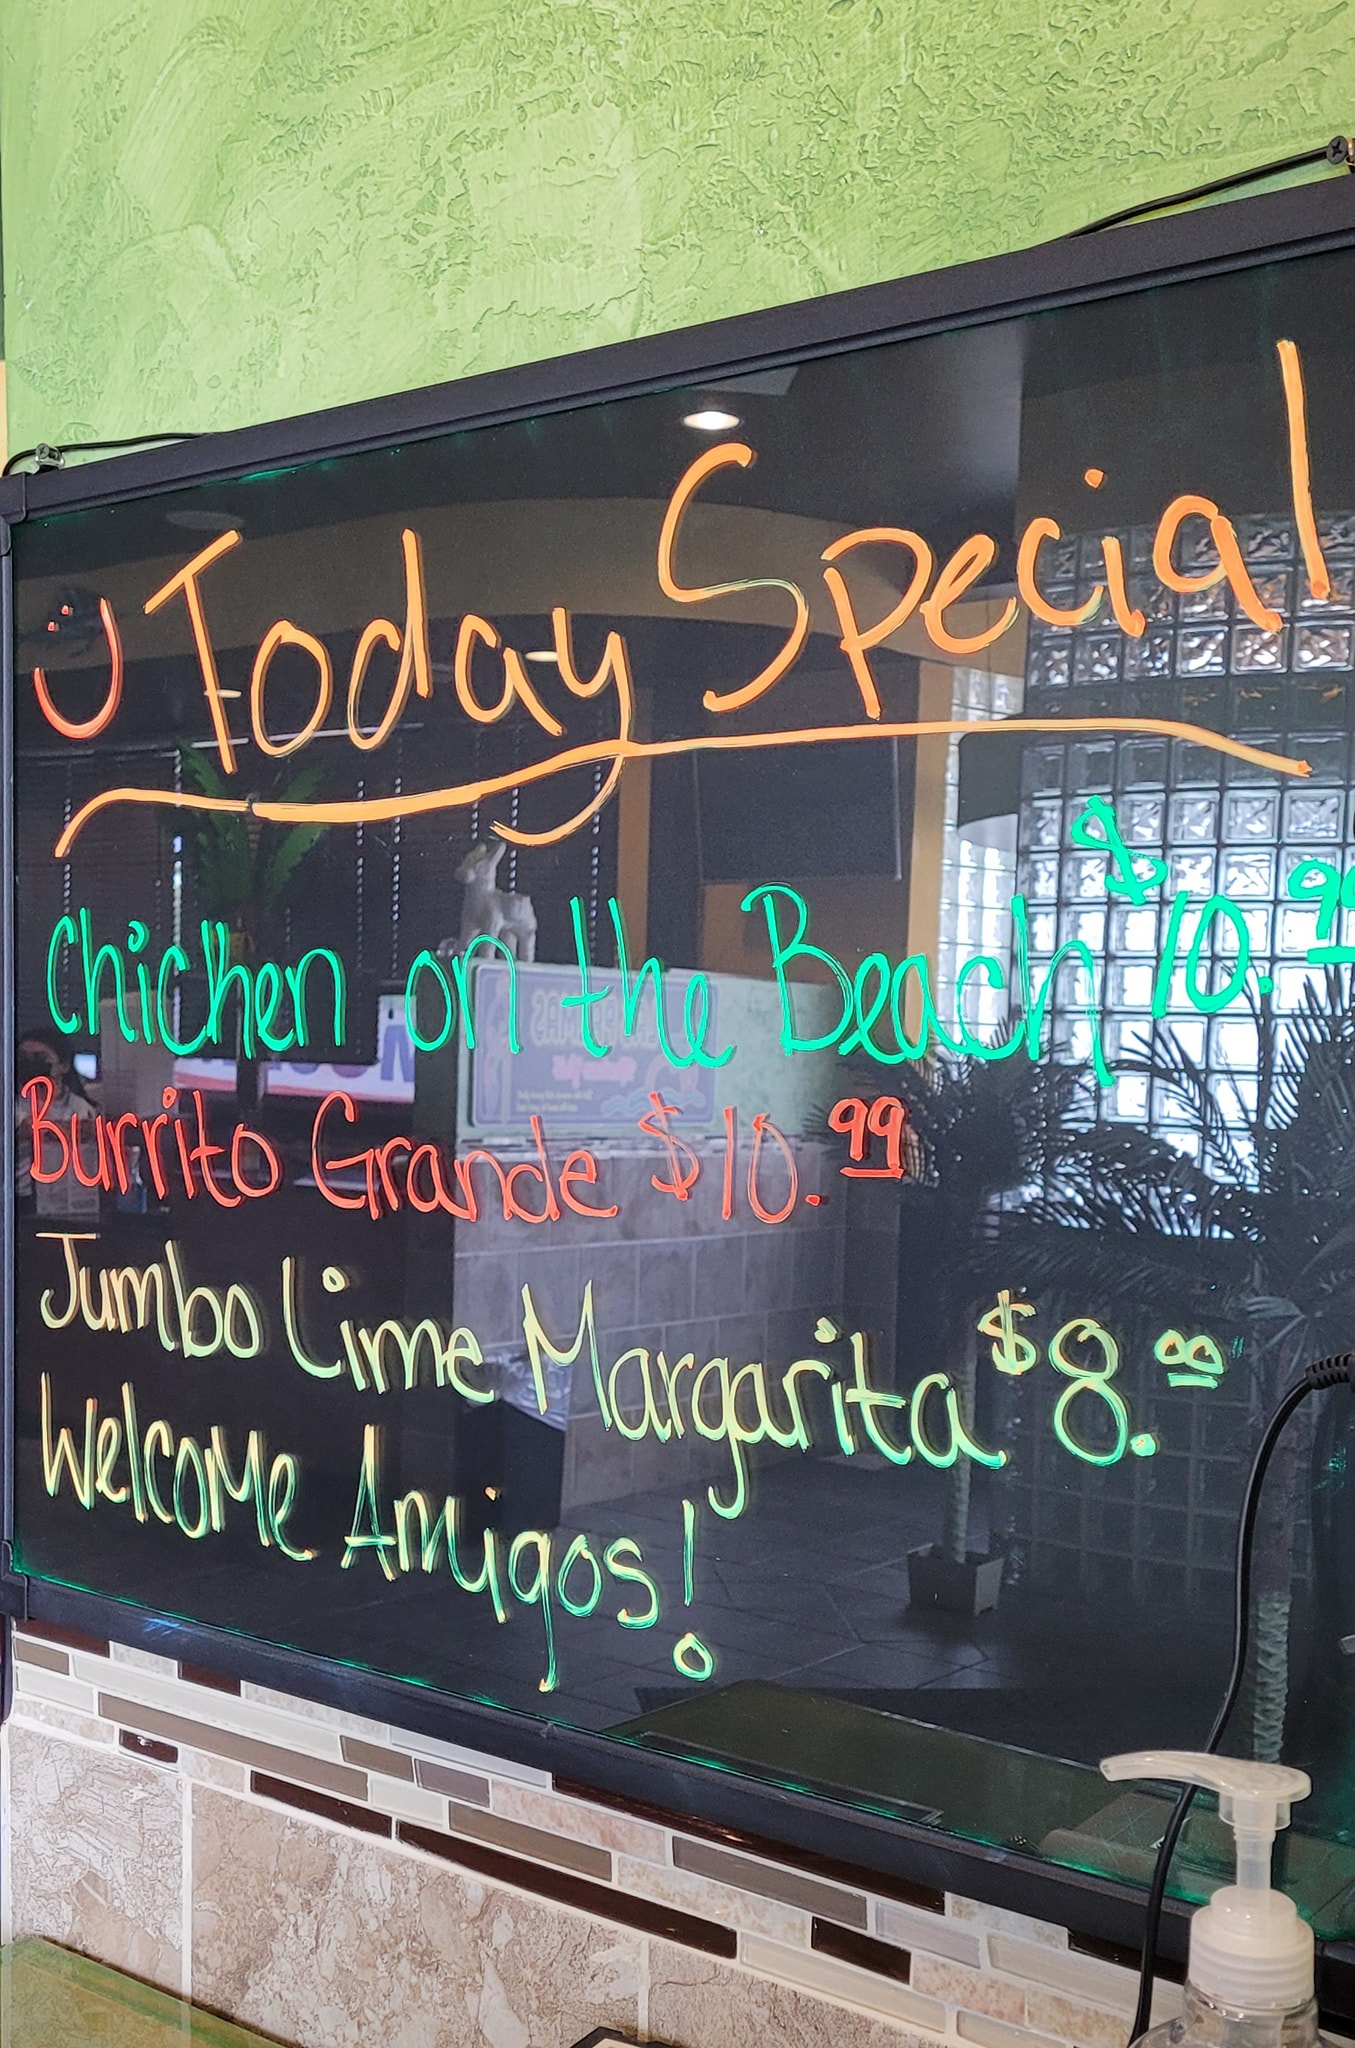 Today Special
Chicken on the Beach $10.99
Burrito Grande $10.99
Jumbo Lime Margarita $8.00
Welcome Amigos!